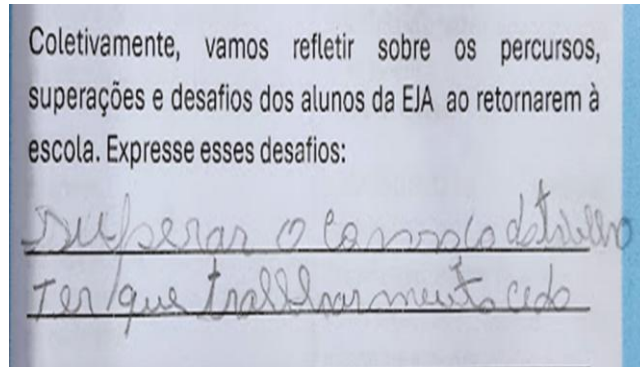 Coletivamente, vamos refletir sobre os percursos,
superações e desafios dos alunos da EJA ao retornarem à
escola. Expresse esses desafios:
Superar o
Ter que
cedo